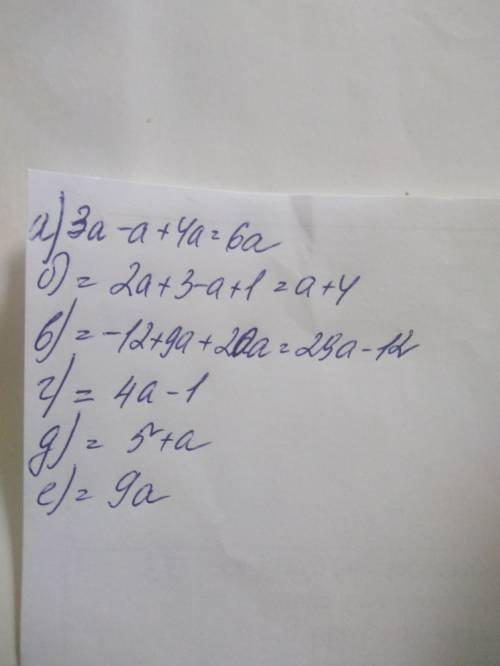 а) 3a - a + 4a = 6a
б) = 2a + 3 - a + 1 = a + 4
в) = -12 + 9a + 20a = 29a - 12
г) = 4a - 1
д) = 5 + a
е) = 9a